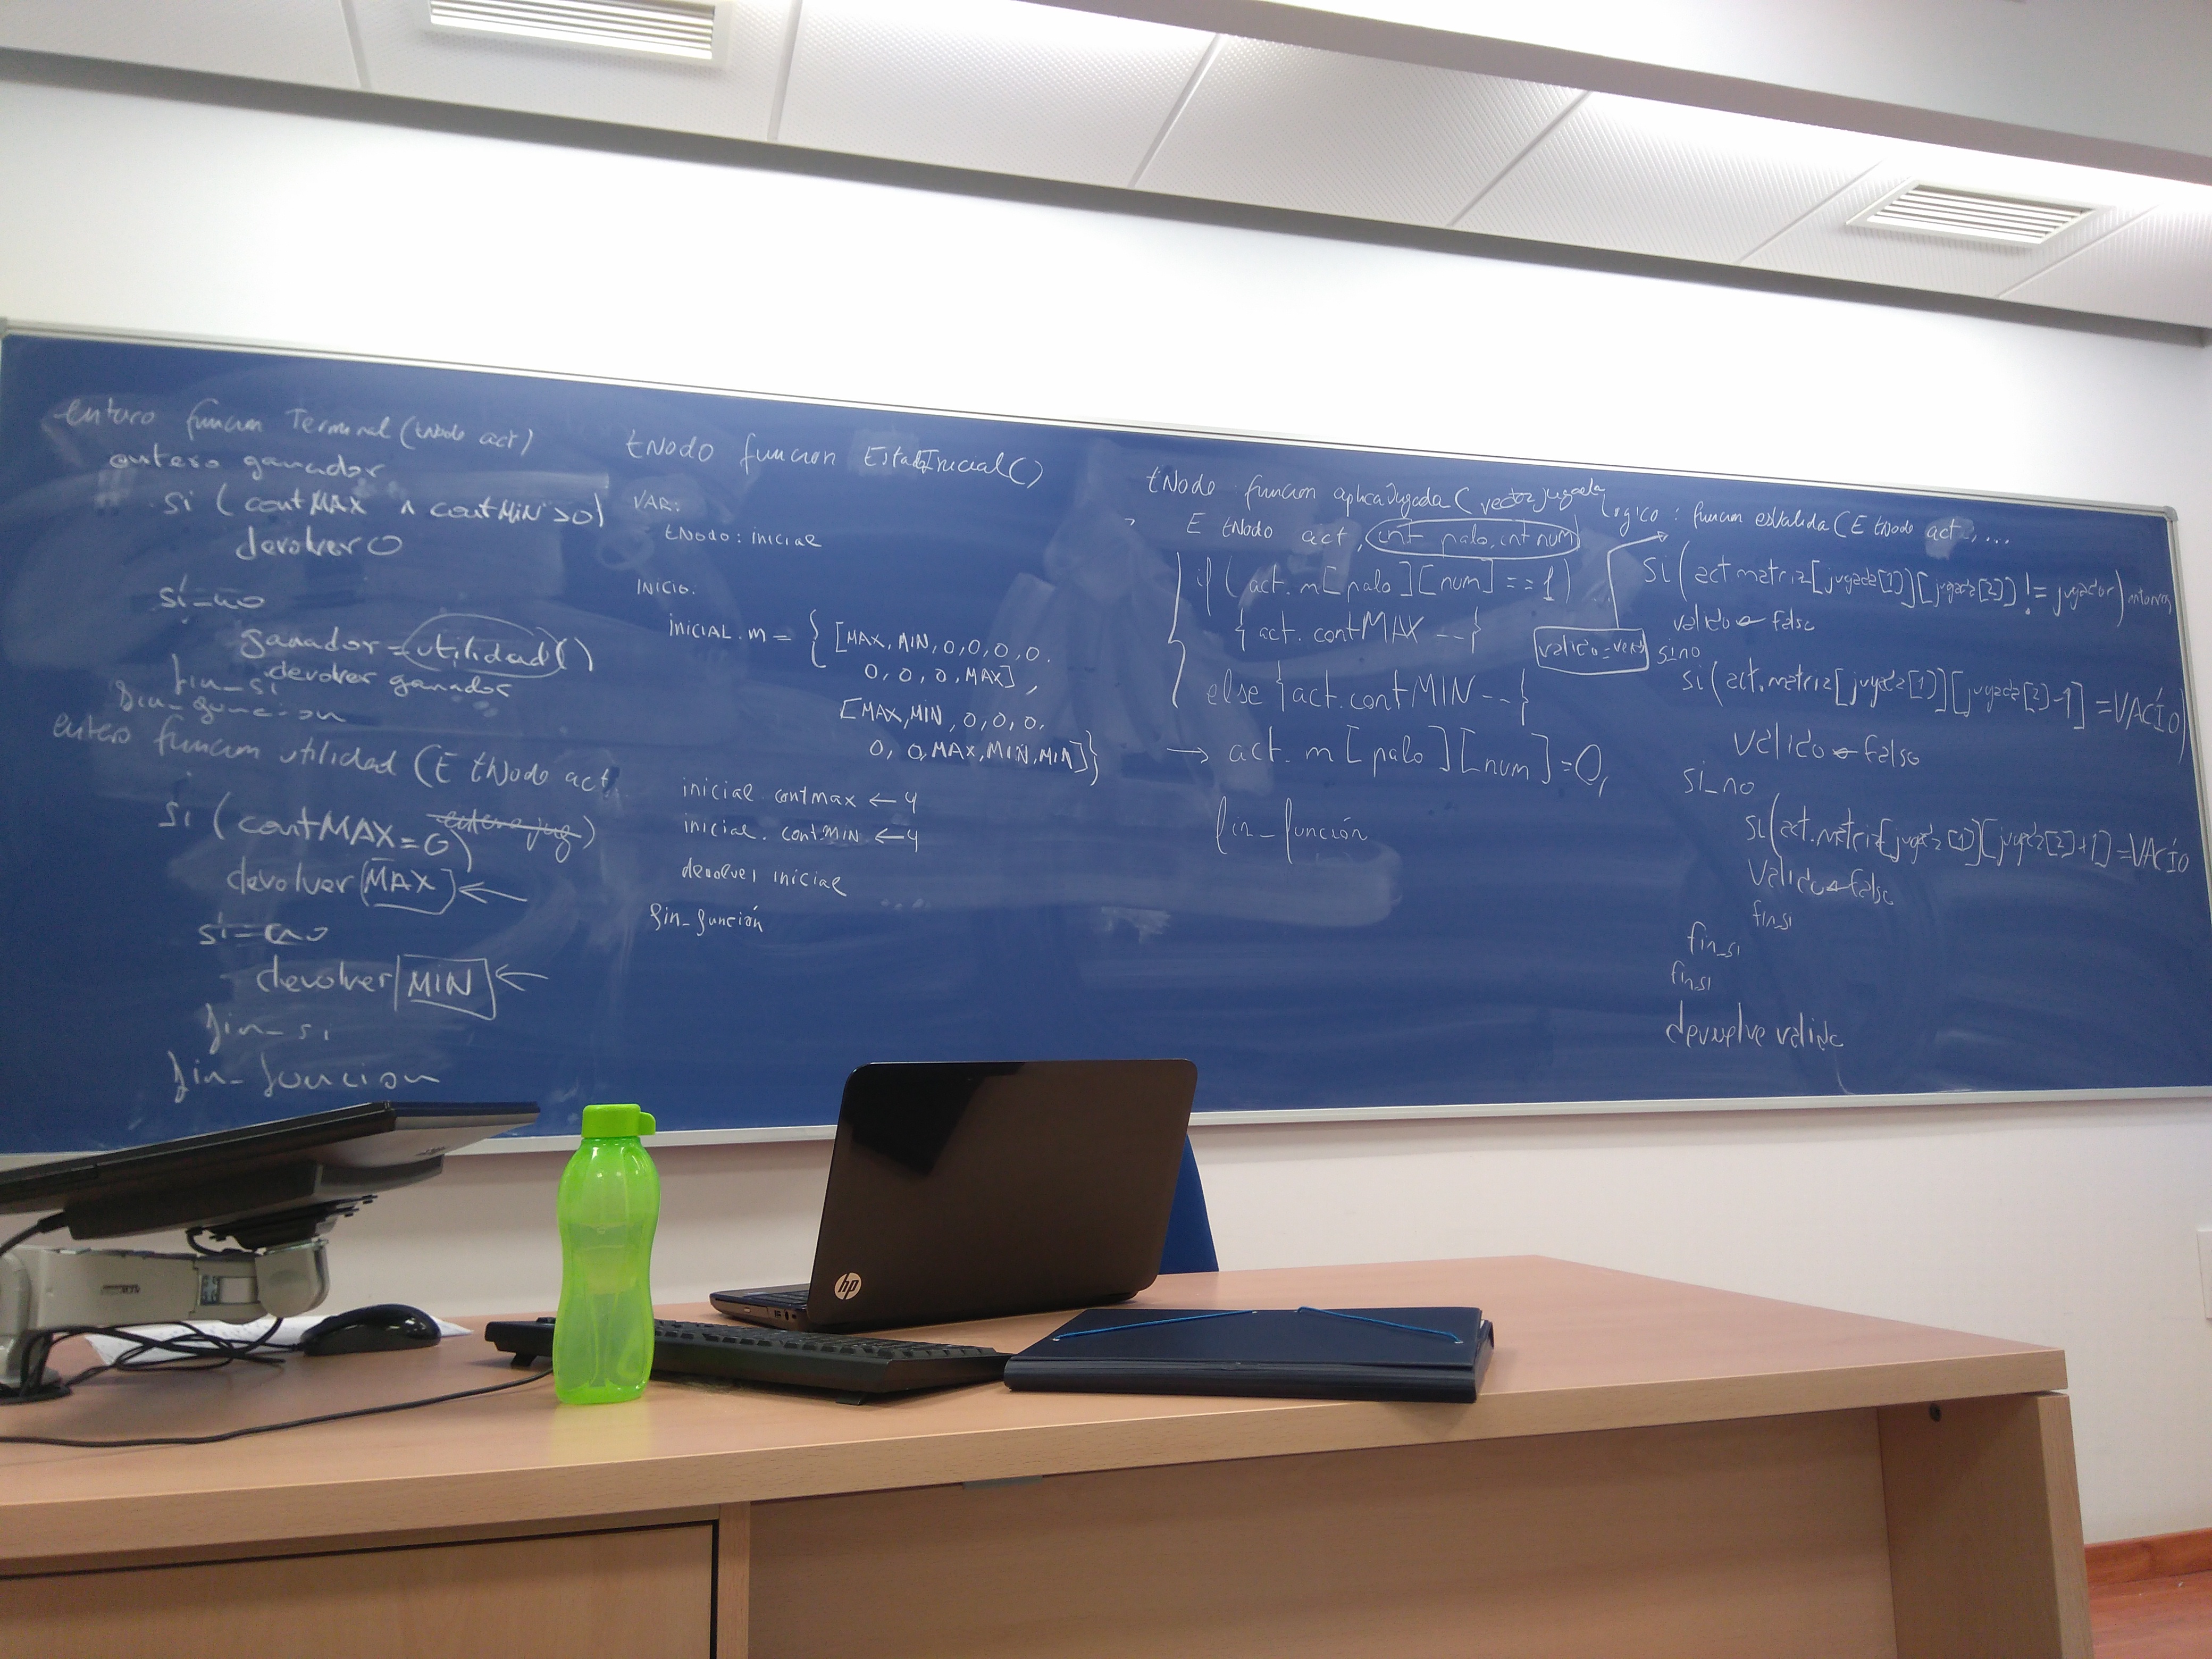 entero funcion Terminal (tNodo act)
entero ganador
si (contMAX ∧ contMIN >0)
devolver 0
si_no
ganador = utilidad()
devolver ganador
fin_si
fin_funcion
entero funcion utilidad (E tNodo act
entero jug)
si (contMAX = 0)
devolver MAX ←
si_no
devolver MIN ←
fin_si
fin_funcion
tNodo funcion EstadoInicial()
VAR:
tNodo: inicial
INICIO:
INICIAL.m = { [MAX, MIN, 0, 0, 0, 0,
0, 0, 0, MAX],
[MAX, MIN, 0, 0, 0,
0, 0, MAX, MIN, MIN] }
inicial contmax ← 4
inicial. contMIN ← 4
devolver inicial
fin_función
tNodo funcion aplicaJugada (vector jugada
E tNodo act, int palo, int num)
if (act. m [palo] [num] == 1)
{ act. contMAX -- }
else { act. contMIN -- }
→ act. m [palo] [num] = 0,
fin_función
Logico : funcion esValida (E tNodo act, ...
valido = verd
si (act matriz [jugada[1]] [jugada[2]] != jugador) entonces
valido ← falso
si_no
si (act. matriz [jugada[1]] [jugada[2]-1] = VACÍO)
valido ← falso
si_no
si (act. matriz [jugada[1]] [jugada[2]+1] = VACÍO
Valido ← falso
fin_si
fin_si
fin_si
devuelve valido
hp